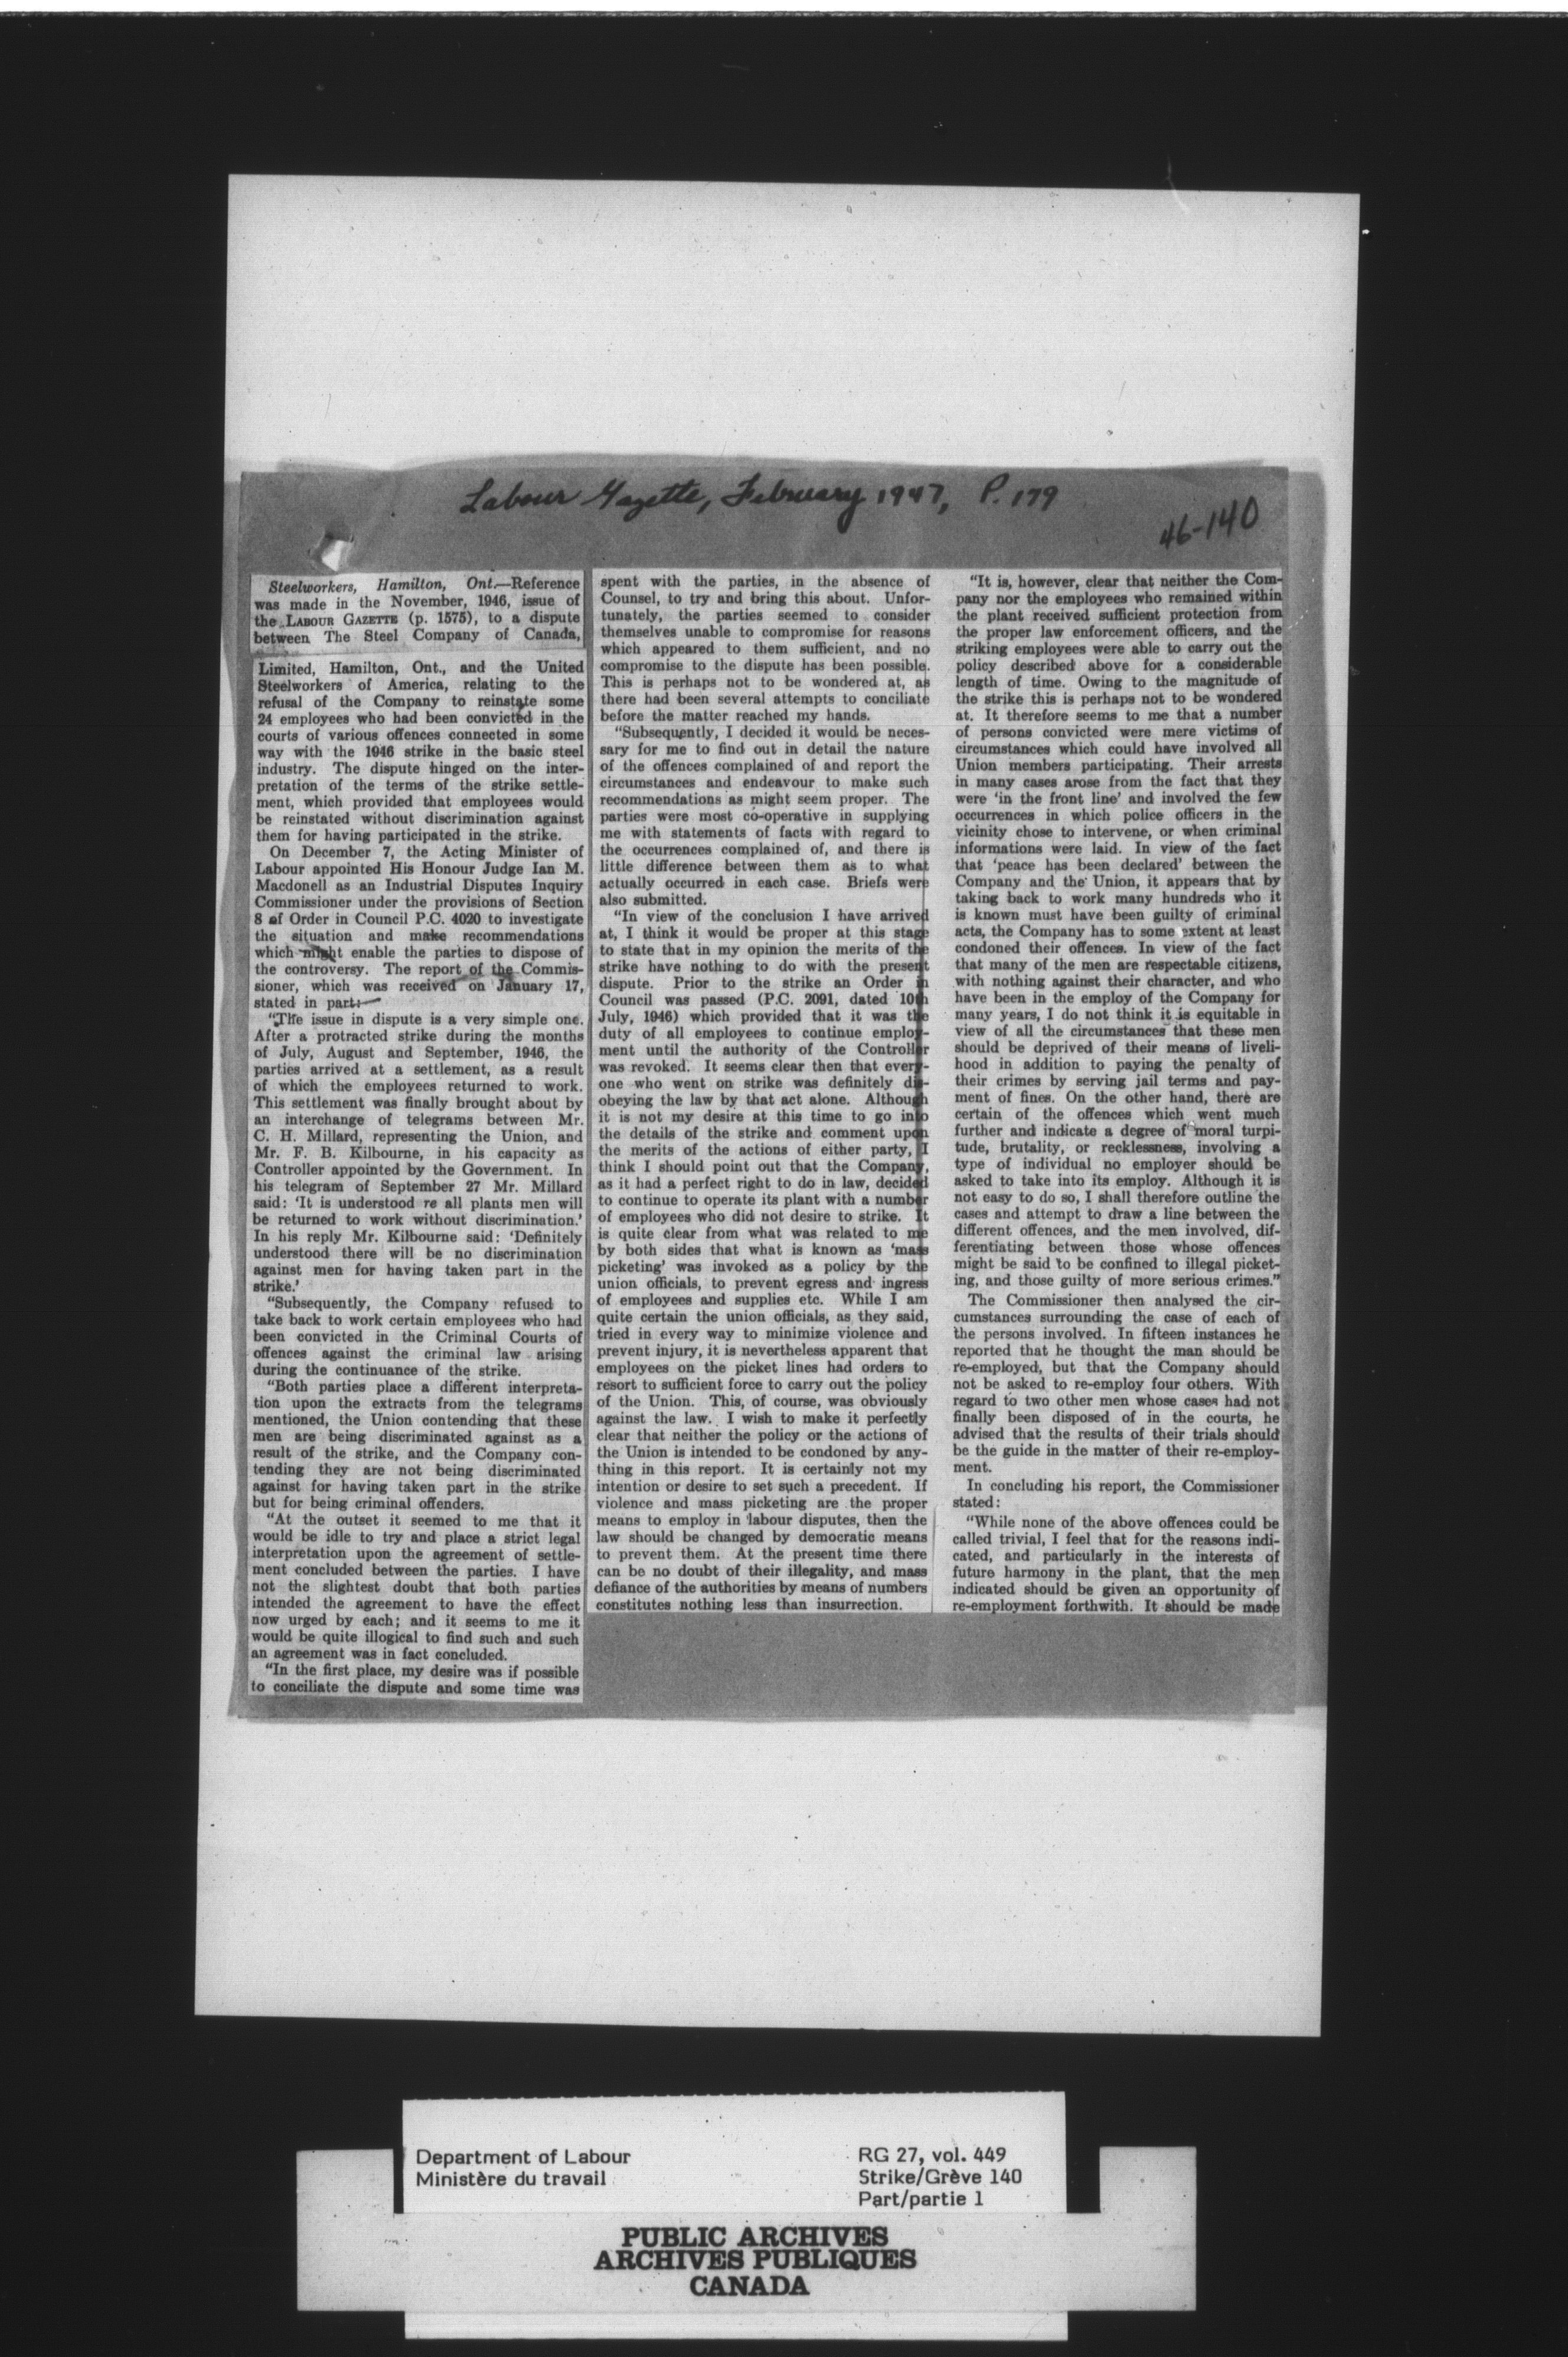 Labour Gazette, February 1947, P. 179
46-140
Steelworkers, Hamilton, Ont.—Reference
was made in the November, 1946, issue of
the LABOUR GAZETTE (p. 1575), to a dispute
between The Steel Company of Canada,
Limited, Hamilton, Ont., and the United
Steelworkers of America, relating to the
refusal of the Company to reinstate some
24 employees who had been convicted in the
courts of various offences connected in some
way with the 1946 strike in the basic steel
industry. The dispute hinged on the inter-
pretation of the terms of the strike settle-
ment, which provided that employees would
be reinstated without discrimination against
them for having participated in the strike.
On December 7, the Acting Minister of
Labour appointed His Honour Judge Ian M.
Macdonell as an Industrial Disputes Inquiry
Commissioner under the provisions of Section
8 of Order in Council P.C. 4020 to investigate
the situation and make recommendations
which might enable the parties to dispose of
the controversy. The report of the Commis-
sioner, which was received on January 17,
stated in part:—
"The issue in dispute is a very simple one.
After a protracted strike during the months
of July, August and September, 1946, the
parties arrived at a settlement, as a result
of which the employees returned to work.
This settlement was finally brought about by
an interchange of telegrams between Mr.
C. H. Millard, representing the Union, and
Mr. F. B. Kilbourne, in his capacity as
Controller appointed by the Government. In
his telegram of September 27 Mr. Millard
said: 'It is understood re all plants men will
be returned to work without discrimination.'
In his reply Mr. Kilbourne said: 'Definitely
understood there will be no discrimination
against men for having taken part in the
strike.'
"Subsequently, the Company refused to
take back to work certain employees who had
been convicted in the Criminal Courts of
offences against the criminal law arising
during the continuance of the strike.
"Both parties place a different interpreta-
tion upon the extracts from the telegrams
mentioned, the Union contending that these
men are being discriminated against as a
result of the strike, and the Company con-
tending they are not being discriminated
against for having taken part in the strike
but for being criminal offenders.
"At the outset it seemed to me that it
would be idle to try and place a strict legal
interpretation upon the agreement of settle-
ment concluded between the parties. I have
not the slightest doubt that both parties
intended the agreement to have the effect
now urged by each; and it seems to me it
would be quite illogical to find such and such
an agreement was in fact concluded.
"In the first place, my desire was if possible
to conciliate the dispute and some time was
spent with the parties, in the absence of
Counsel, to try and bring this about. Unfor-
tunately, the parties seemed to consider
themselves unable to compromise for reasons
which appeared to them sufficient, and no
compromise to the dispute has been possible.
This is perhaps not to be wondered at, as
there had been several attempts to conciliate
before the matter reached my hands.
"Subsequently, I decided it would be neces-
sary for me to find out in detail the nature
of the offences complained of and report the
circumstances and endeavour to make such
recommendations as might seem proper. The
parties were most co-operative in supplying
me with statements of facts with regard to
the occurrences complained of, and there is
little difference between them as to what
actually occurred in each case. Briefs were
also submitted.
"In view of the conclusion I have arrived
at, I think it would be proper at this stage
to state that in my opinion the merits of the
strike have nothing to do with the present
dispute. Prior to the strike an Order in
Council was passed (P.C. 2091, dated 10th
July, 1946) which provided that it was the
duty of all employees to continue employ-
ment until the authority of the Controller
was revoked. It seems clear then that every-
one who went on strike was definitely dis-
obeying the law by that act alone. Although
it is not my desire at this time to go into
the details of the strike and comment upon
the merits of the actions of either party, I
think I should point out that the Company,
as it had a perfect right to do in law, decided
to continue to operate its plant with a number
of employees who did not desire to strike. It
is quite clear from what was related to me
by both sides that what is known as 'mass
picketing' was invoked as a policy by the
union officials, to prevent egress and ingress
of employees and supplies etc. While I am
quite certain the union officials, as they said,
tried in every way to minimize violence and
prevent injury, it is nevertheless apparent that
employees on the picket lines had orders to
resort to sufficient force to carry out the policy
of the Union. This, of course, was obviously
against the law. I wish to make it perfectly
clear that neither the policy or the actions of
the Union is intended to be condoned by any-
thing in this report. It is certainly not my
intention or desire to set such a precedent. If
violence and mass picketing are the proper
means to employ in labour disputes, then the
law should be changed by democratic means
to prevent them. At the present time there
can be no doubt of their illegality, and mass
defiance of the authorities by means of numbers
constitutes nothing less than insurrection.
"It is, however, clear that neither the Com-
pany nor the employees who remained within
the plant received sufficient protection from
the proper law enforcement officers, and the
striking employees were able to carry out the
policy described above for a considerable
length of time. Owing to the magnitude of
the strike this is perhaps not to be wondered
at. It therefore seems to me that a number
of persons convicted were mere victims of
circumstances which could have involved all
Union members participating. Their arrests
in many cases arose from the fact that they
were 'in the front line' and involved the few
occurrences in which police officers in the
vicinity chose to intervene, or when criminal
informations were laid. In view of the fact
that 'peace has been declared' between the
Company and the Union, it appears that by
taking back to work many hundreds who it
is known must have been guilty of criminal
acts, the Company has to some extent at least
condoned their offences. In view of the fact
that many of the men are respectable citizens,
with nothing against their character, and who
have been in the employ of the Company for
many years, I do not think it is equitable in
view of all the circumstances that these men
should be deprived of their means of liveli-
hood in addition to paying the penalty of
their crimes by serving jail terms and pay-
ment of fines. On the other hand, there are
certain of the offences which went much
further and indicate a degree of moral turpi-
tude, brutality, or recklessness, involving a
type of individual no employer should be
asked to take into its employ. Although it is
not easy to do so, I shall therefore outline the
cases and attempt to draw a line between the
different offences, and the men involved, dif-
ferentiating between those whose offences
might be said to be confined to illegal picket-
ing, and those guilty of more serious crimes."
The Commissioner then analysed the cir-
cumstances surrounding the case of each of
the persons involved. In fifteen instances he
reported that he thought the man should be
re-employed, but that the Company should
not be asked to re-employ four others. With
regard to two other men whose cases had not
finally been disposed of in the courts, he
advised that the results of their trials should
be the guide in the matter of their re-employ-
ment.
In concluding his report, the Commissioner
stated:
"While none of the above offences could be
called trivial, I feel that for the reasons indi-
cated, and particularly in the interests of
future harmony in the plant, that the men
indicated should be given an opportunity of
re-employment forthwith. It should be made
Department of Labour
Ministère du travail
RG 27, vol. 449
Strike/Grève 140
Part/partie 1
PUBLIC ARCHIVES
ARCHIVES PUBLIQUES
CANADA